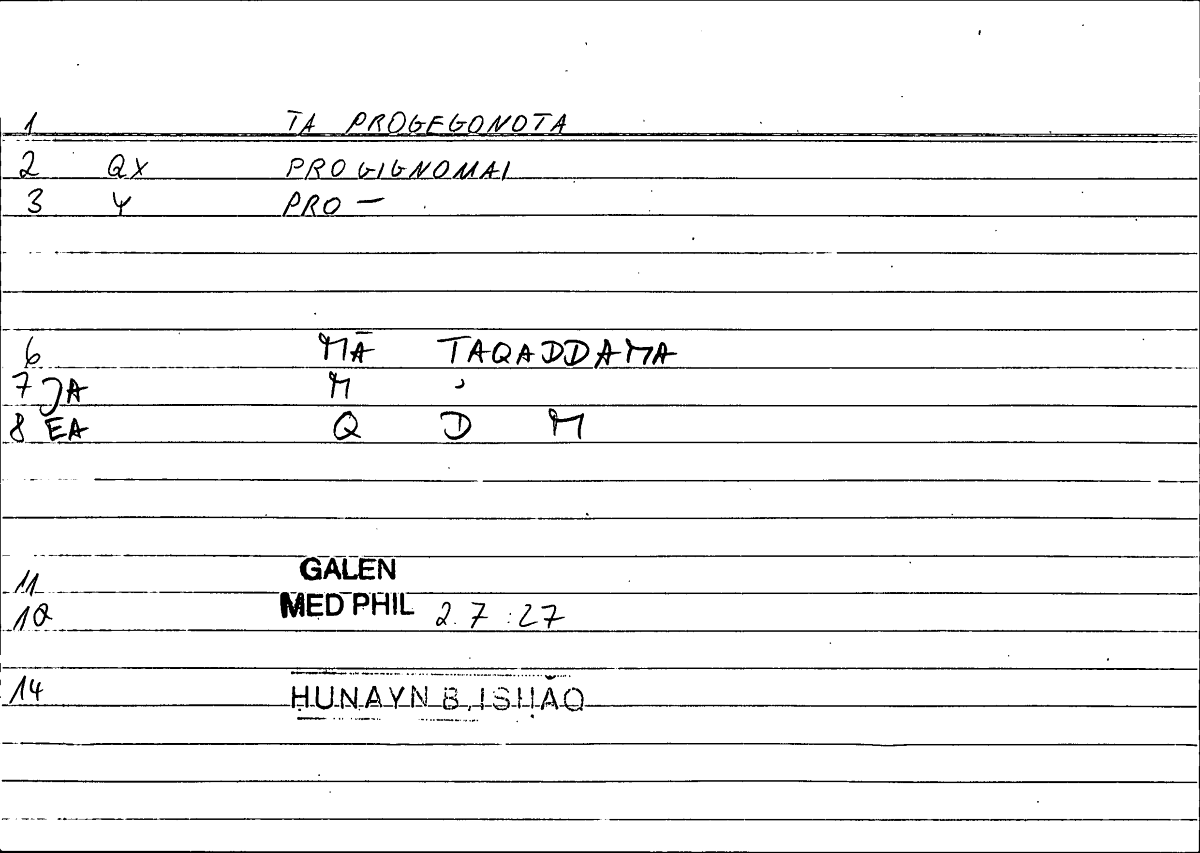 1 TA PROGEGONOTA
2 QX PROGIGNOMAI
3 Ψ PRO —
6 MĀ TAQADDAMA
7 JA M ʾ
8 EA Q D M
11 GALEN
12 MED PHIL 2.7:27
14 ḤUNAYN B. ISḤĀQ